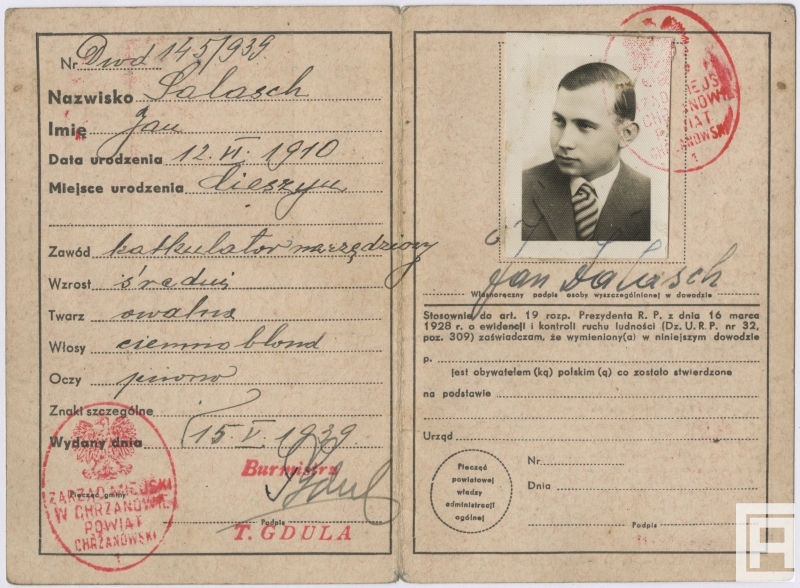 Nr Dwd 145/939.
Nazwisko Salasch
Imię Jan
Data urodzenia 12. VI. 1910
Miejsce urodzenia Cieszyn
Zawód kalkulator narzędziowy
Wzrost średni
Twarz owalna
Włosy ciemno blond
Oczy piwne
Znaki szczególne
Wydany dnia 15. V. 1939.
Burmistrz
Pieczęć gminy
ZARZĄD MIEJSKI
W CHRZANOWIE
POWIAT
CHRZANOWSKI
1
Podpis
T. GDULA
POWIAT
CHRZANOWSKI
1
Jan Salasch
Własnoręczny podpis osoby wyszczególnionej w dowodzie
Stosownie do art. 19 rozp. Prezydenta R. P. z dnia 16 marca
1928 r. o ewidencji i kontroli ruchu ludności (Dz. U. R. P. nr 32,
poz. 309) zaświadczam, że wymieniony(a) w niniejszym dowodzie
p.
jest obywatelem (ką) polskim (ą) co zostało stwierdzone
na podstawie
Urząd
Pieczęć
powiatowej
władzy
administracji
ogólnej
Nr
Dnia
Podpis